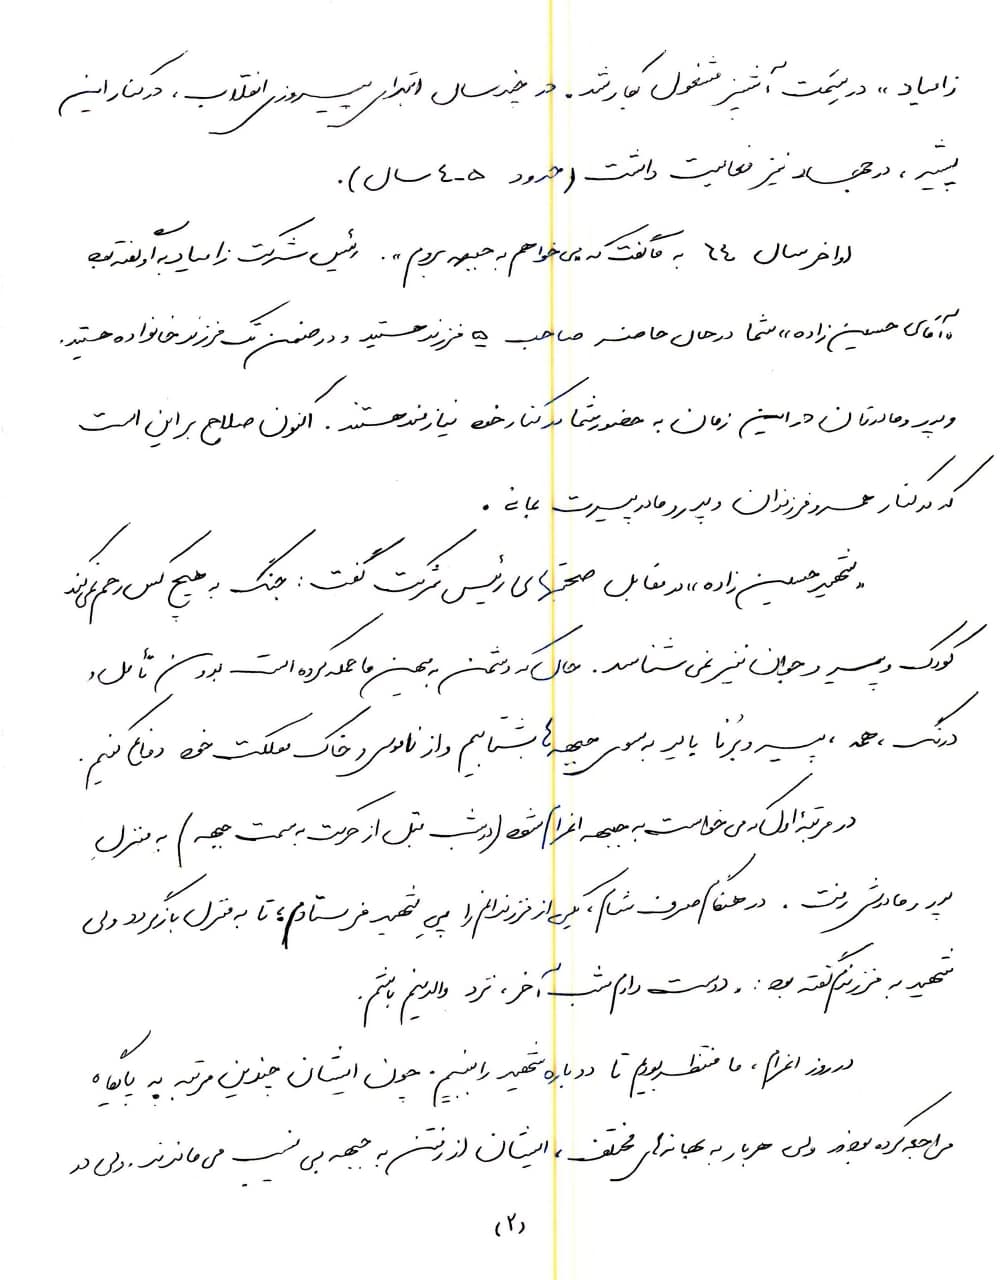 زامیاد» در سمت آشپز مشغول بکار شد. در چند سال ابتدای پیروزی انقلاب، در کنار این
پیشه، در جهاد نیز فعالیت داشت (حدود ۵-٤ سال).
اواخر سال ٦٤ به ما گفت که می‌خواهم به جبهه بروم». رئیس شرکت زامیاد به او گفته بود
«آقای حسین زاده» شما در حال حاضر صاحب ۵ فرزند هستید و در ضمن تک فرزند خانواده هستید.
و پدر و مادرتان در این زمان به حضور شما در کنار خود نیازمند هستند. اکنون صلاح بر این است
که در کنار همسر و فرزندان و پدر و مادر پیرت بمانی.
«شهید حسین زاده» در مقابل صحبتهای رئیس شرکت گفت: جنگ به هیچ کس رحم نمی‌کند
کودک و پیر و جوان نیز نمی شناسد. حال که دشمن به میهن ما حمله کرده است بدون تأمل و
درنگ، همه، پیر و بُرنا باید به سوی جبهه‌ها بشتابیم و از ناموس و خاک مملکت خود دفاع کنیم.
در مرتبهٔ اول که می خواست به جبهه اعزام شود (در شب قبل از حرکت به سمت جبهه) به منزلِ
پدر و مادرش رفت. در هنگام صرف شام، یکی از فرزندانم را پیِ شهید فرستادم، تا به منزل بازگردد ولی
شهید به فرزندم گفته بود: «دوست دارم شب آخر، نزد والدینم باشم.
در روز اعزام، ما منتظر بودیم تا دوباره شهید را ببینیم. چون ایشان چندین مرتبه به پایگاه
مراجعه کرده بودند ولی هربار به بهانه‌های مختلف، ایشان از رفتن به جبهه بی نصیب می ماندند. ولی در
(۲)